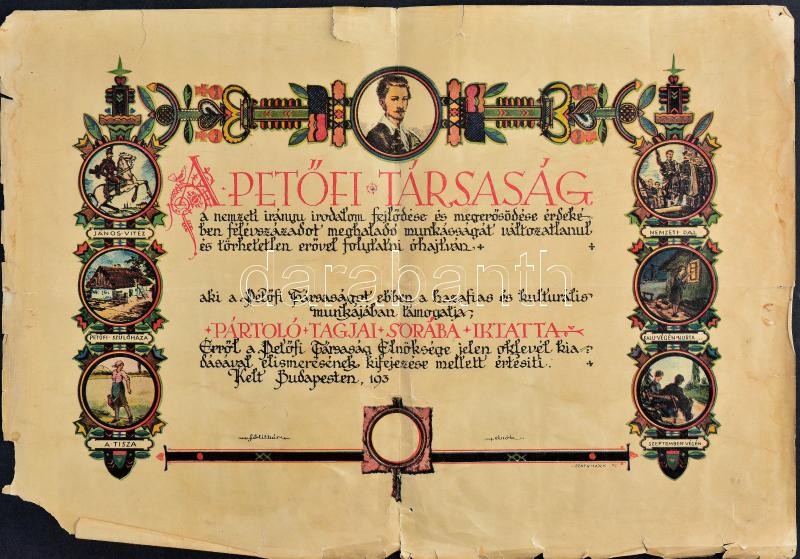 A PETŐFI TÁRSASÁG
a nemzeti irányu irodalom fejlődése és megerősödése érdeké-
ben félévszázadot meghaladó munkásságát változatlanul
és törhetetlen erővel folytatni óhajtván
aki a Petőfi Társaságot ebben a hazafias és kulturális
munkájában támogatja;
PÁRTOLÓ TAGJAI SORÁBA IKTATTA
Erről a Petőfi Társaság Elnöksége jelen oklevél kia-
dásával elismerésének kifejezése mellett értesíti.
Kelt Budapesten, 193
főtitkár
elnök
JÁNOS VITÉZ
PETŐFI SZÜLŐHÁZA
A TISZA
NEMZETI DAL
FALU VÉGÉN KURTA...
SZEPTEMBER VÉGÉN
darabanth